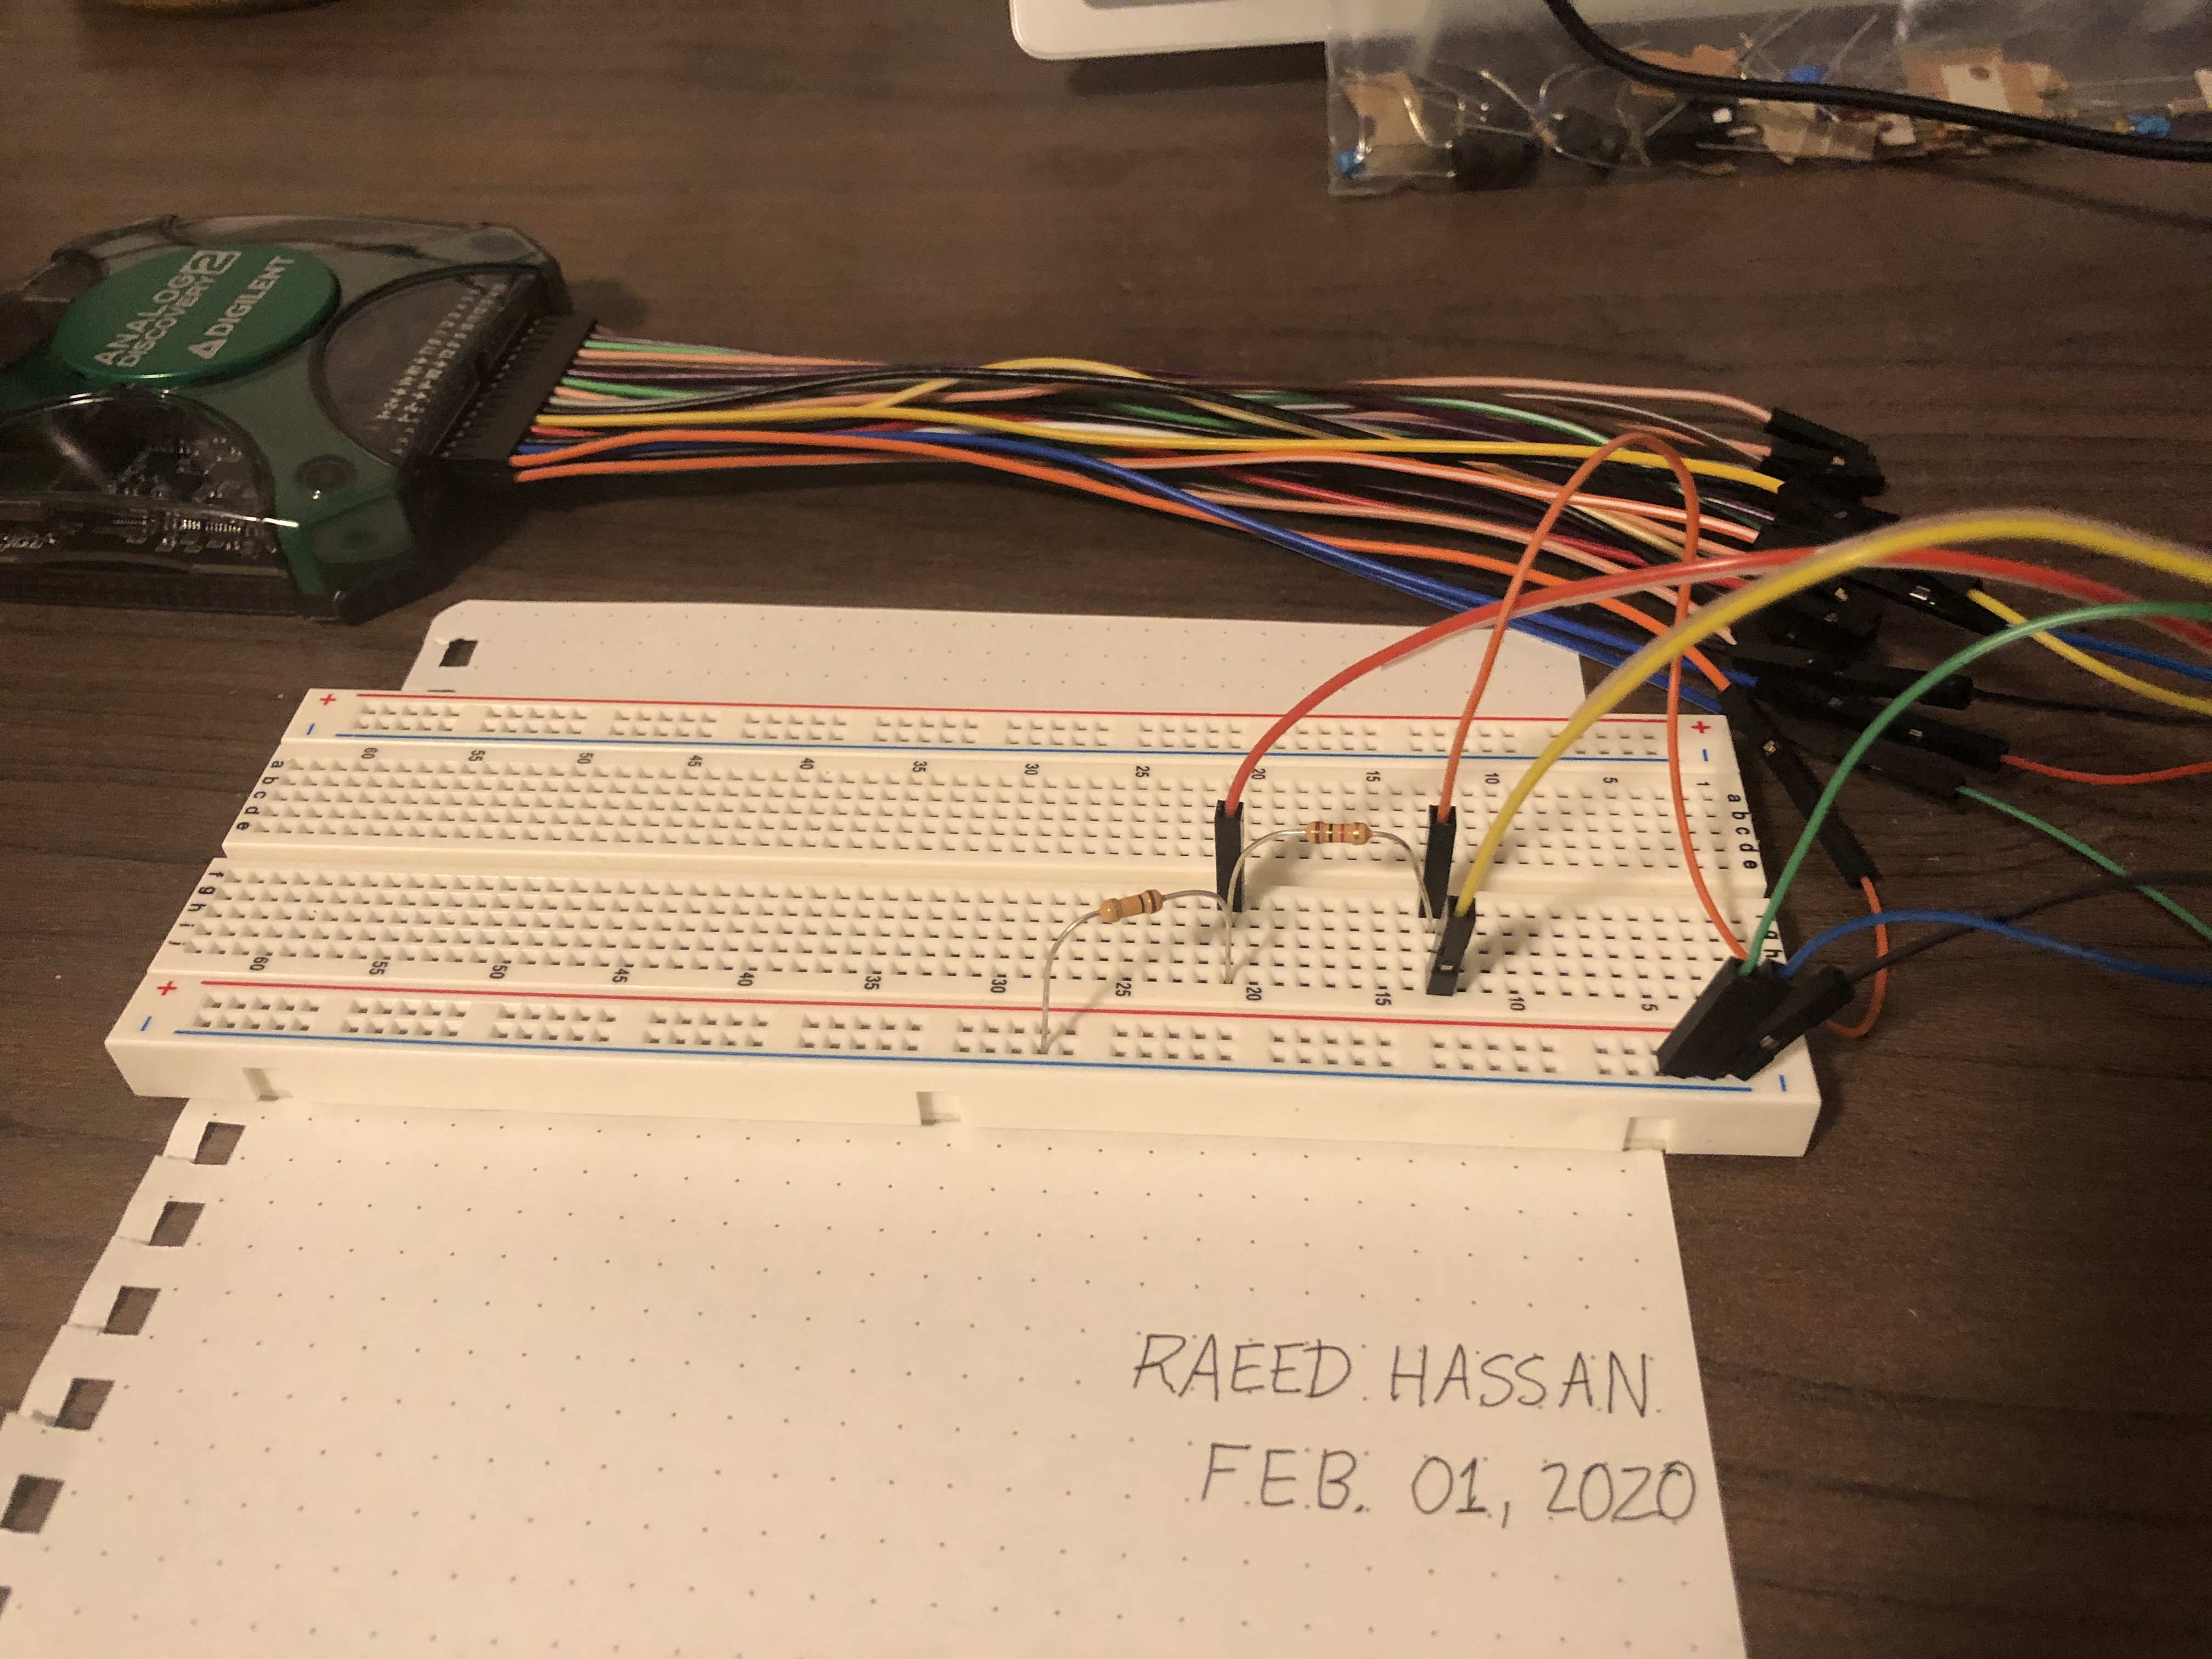 ANALOG
DISCOVERY 2
DIGILENT
+ +
- -
60 55 50 45 40 35 30 25 20 15 10 5 1
a b c d e
a b c d e
f g h i j
60 55 50 45 40 35 30 25 20 15 10 5
+
- -
RAEED HASSAN
FEB. 01, 2020